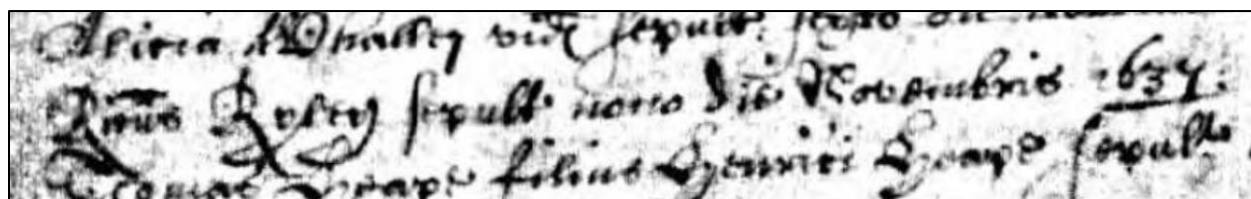 Alicia Whalley vid sepult: sexto die
Ricus Ryley sepult nono die Novembris 1637.
Thomas Heape filius Henrici Heape sepult